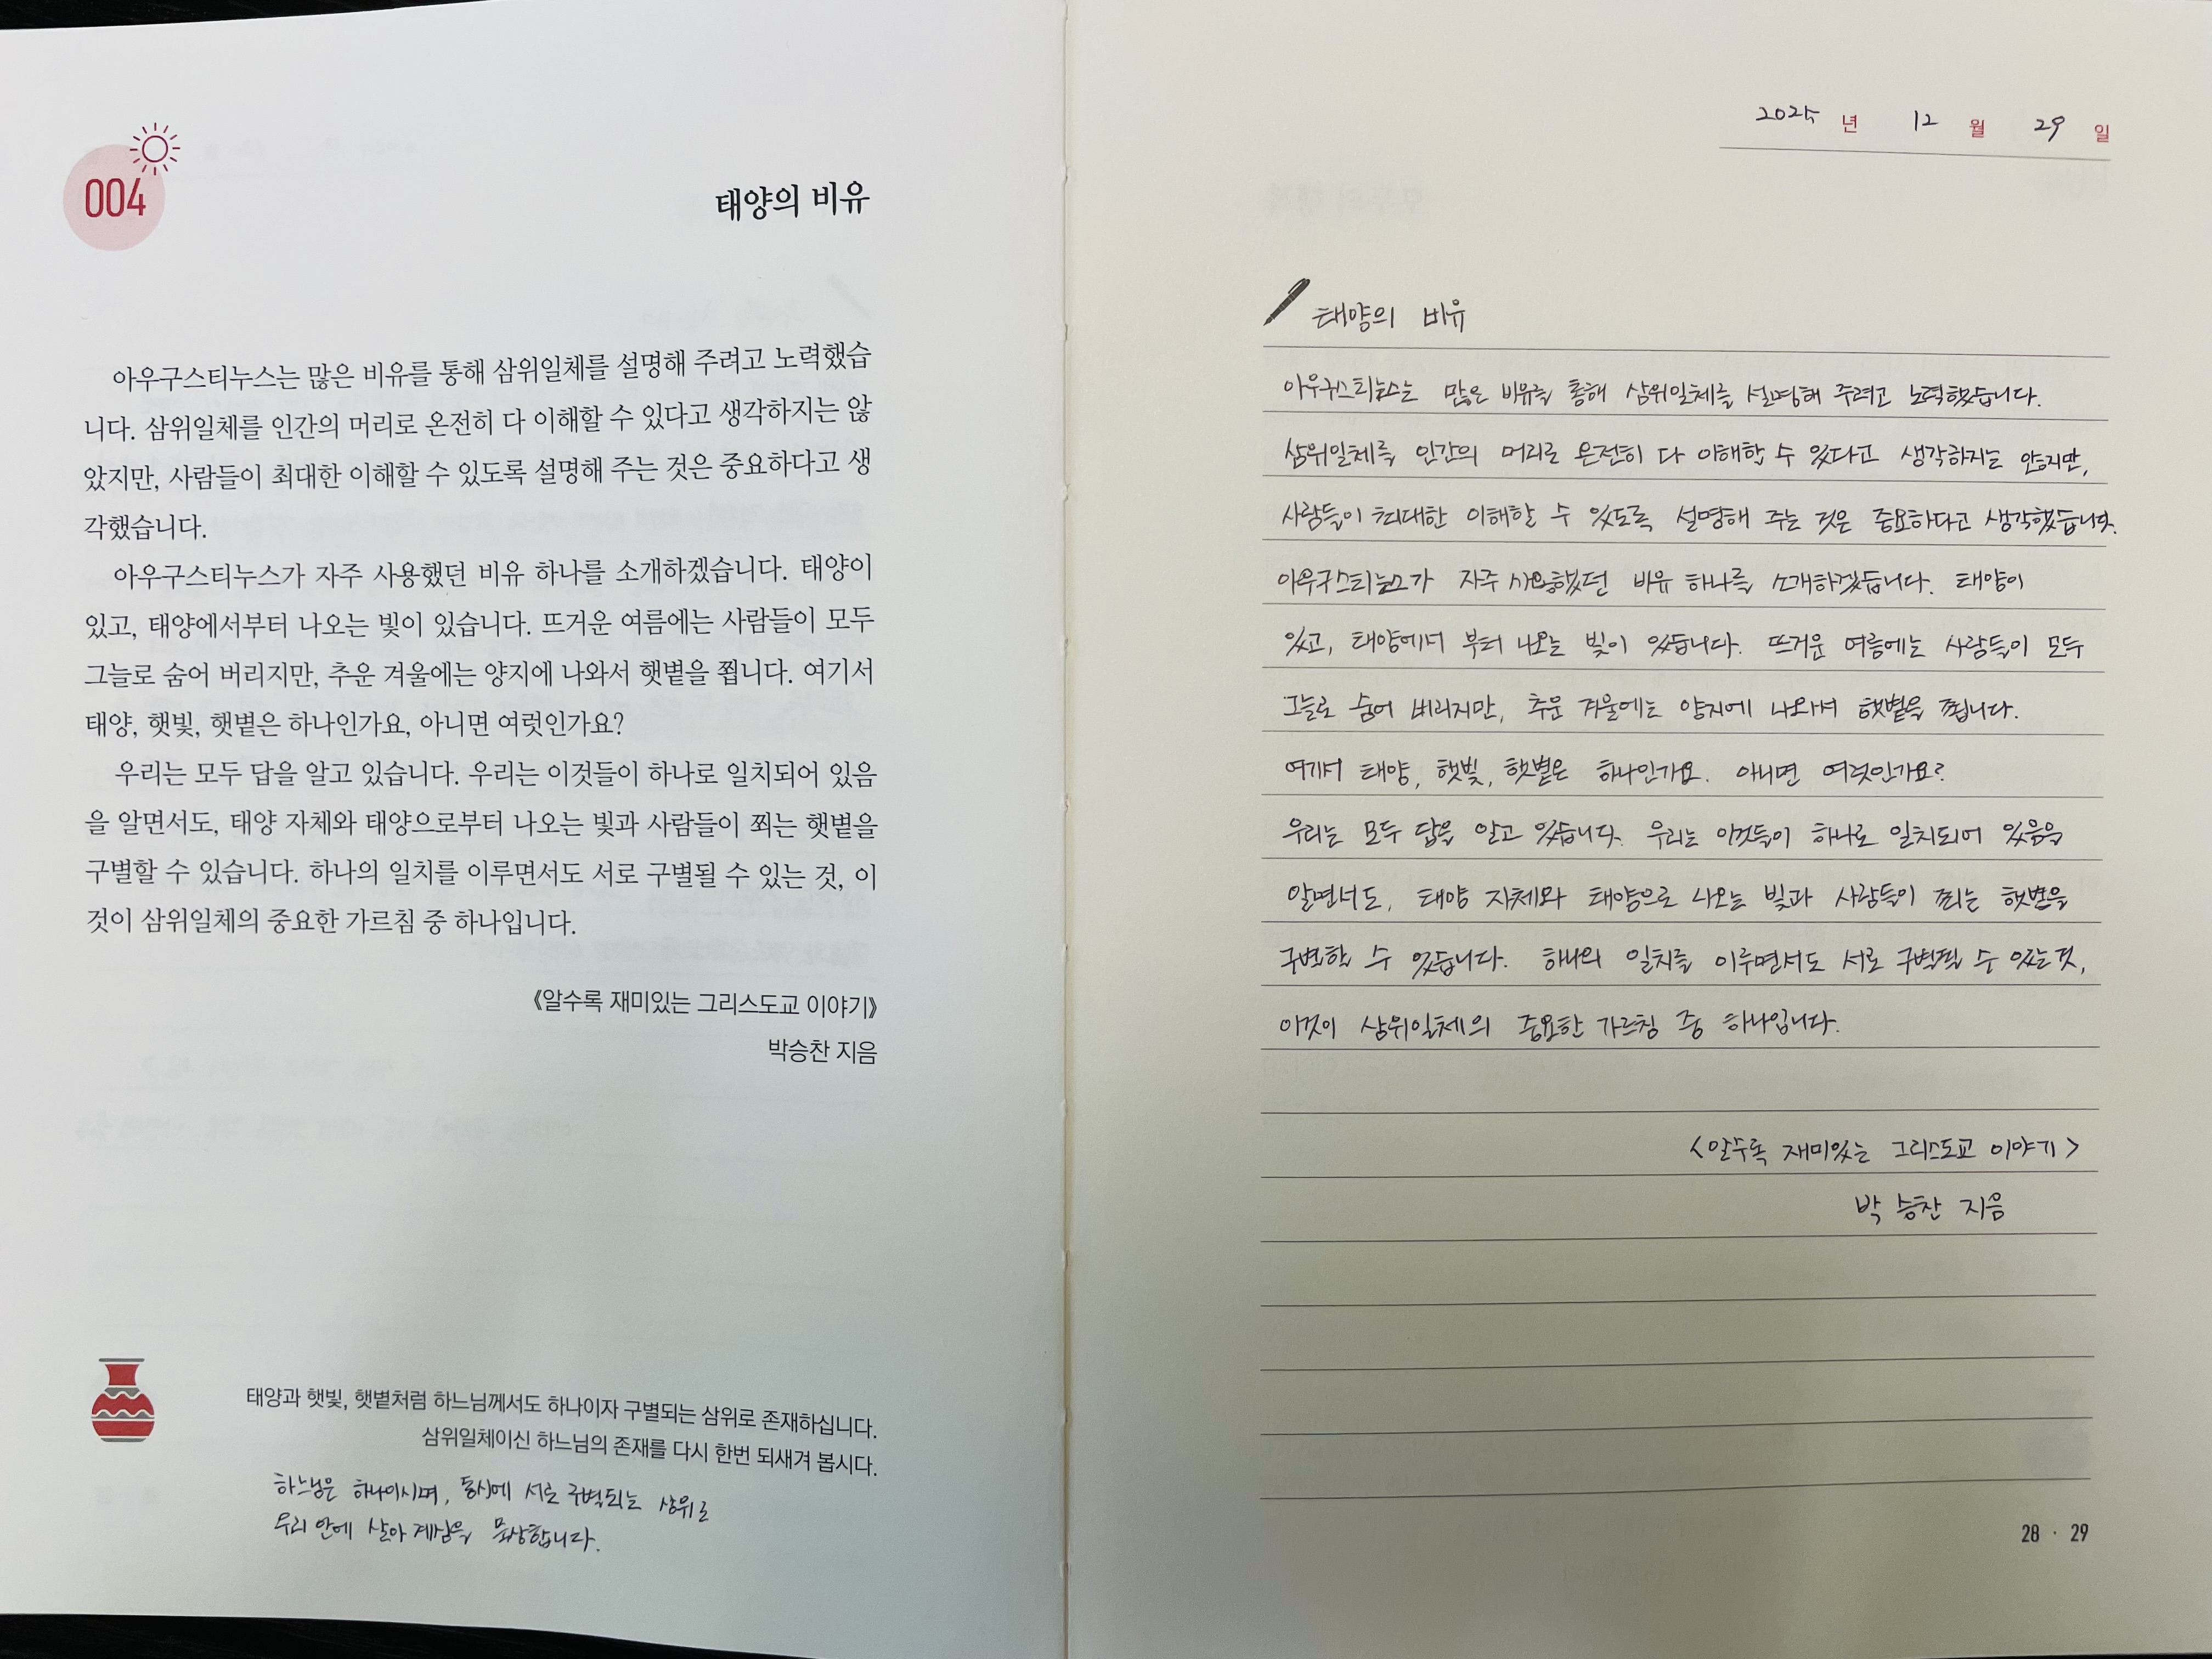 004
태양의 비유
아우구스티누스는 많은 비유를 통해 삼위일체를 설명해 주려고 노력했습
니다. 삼위일체를 인간의 머리로 온전히 다 이해할 수 있다고 생각하지는 않
았지만, 사람들이 최대한 이해할 수 있도록 설명해 주는 것은 중요하다고 생
각했습니다.
아우구스티누스가 자주 사용했던 비유 하나를 소개하겠습니다. 태양이
있고, 태양에서부터 나오는 빛이 있습니다. 뜨거운 여름에는 사람들이 모두
그늘로 숨어 버리지만, 추운 겨울에는 양지에 나와서 햇볕을 쬡니다. 여기서
태양, 햇빛, 햇볕은 하나인가요, 아니면 여럿인가요?
우리는 모두 답을 알고 있습니다. 우리는 이것들이 하나로 일치되어 있음
을 알면서도, 태양 자체와 태양으로부터 나오는 빛과 사람들이 쬐는 햇볕을
구별할 수 있습니다. 하나의 일치를 이루면서도 서로 구별될 수 있는 것, 이
것이 삼위일체의 중요한 가르침 중 하나입니다.
《알수록 재미있는 그리스도교 이야기》
박승찬 지음
태양과 햇빛, 햇볕처럼 하느님께서도 하나이자 구별되는 삼위로 존재하십니다.
삼위일체이신 하느님의 존재를 다시 한번 되새겨 봅시다.
하느님은 하나이시며, 동시에 서로 구별되는 삼위로
우리 안에 살아 계심을 묵상합니다.
2025 년 12 월 29 일
태양의 비유
아우구스티누스는 많은 비유를 통해 삼위일체를 설명해 주려고 노력했습니다.
삼위일체를 인간의 머리로 온전히 다 이해할 수 있다고 생각하지는 않지만,
사람들이 최대한 이해할 수 있도록 설명해 주는 것은 중요하다고 생각했습니다.
아우구스티누스가 자주 사용했던 비유 하나를 소개하겠습니다. 태양이
있고, 태양에서 부터 나오는 빛이 있습니다. 뜨거운 여름에는 사람들이 모두
그늘로 숨어 버리지만, 추운 겨울에는 양지에 나와서 햇볕을 쬡니다.
여기서 태양, 햇빛, 햇볕은 하나인가요. 아니면 여럿인가요?
우리는 모두 답을 알고 있습니다. 우리는 이것들이 하나로 일치되어 있음을
알면서도, 태양 자체와 태양으로 나오는 빛과 사람들이 쬐는 햇볕을
구별할 수 있습니다. 하나의 일치를 이루면서도 서로 구별될 수 있는 것,
이것이 삼위일체의 중요한 가르침 중 하나입니다.
<알수록 재미있는 그리스도교 이야기>
박 승찬 지음
28 · 29